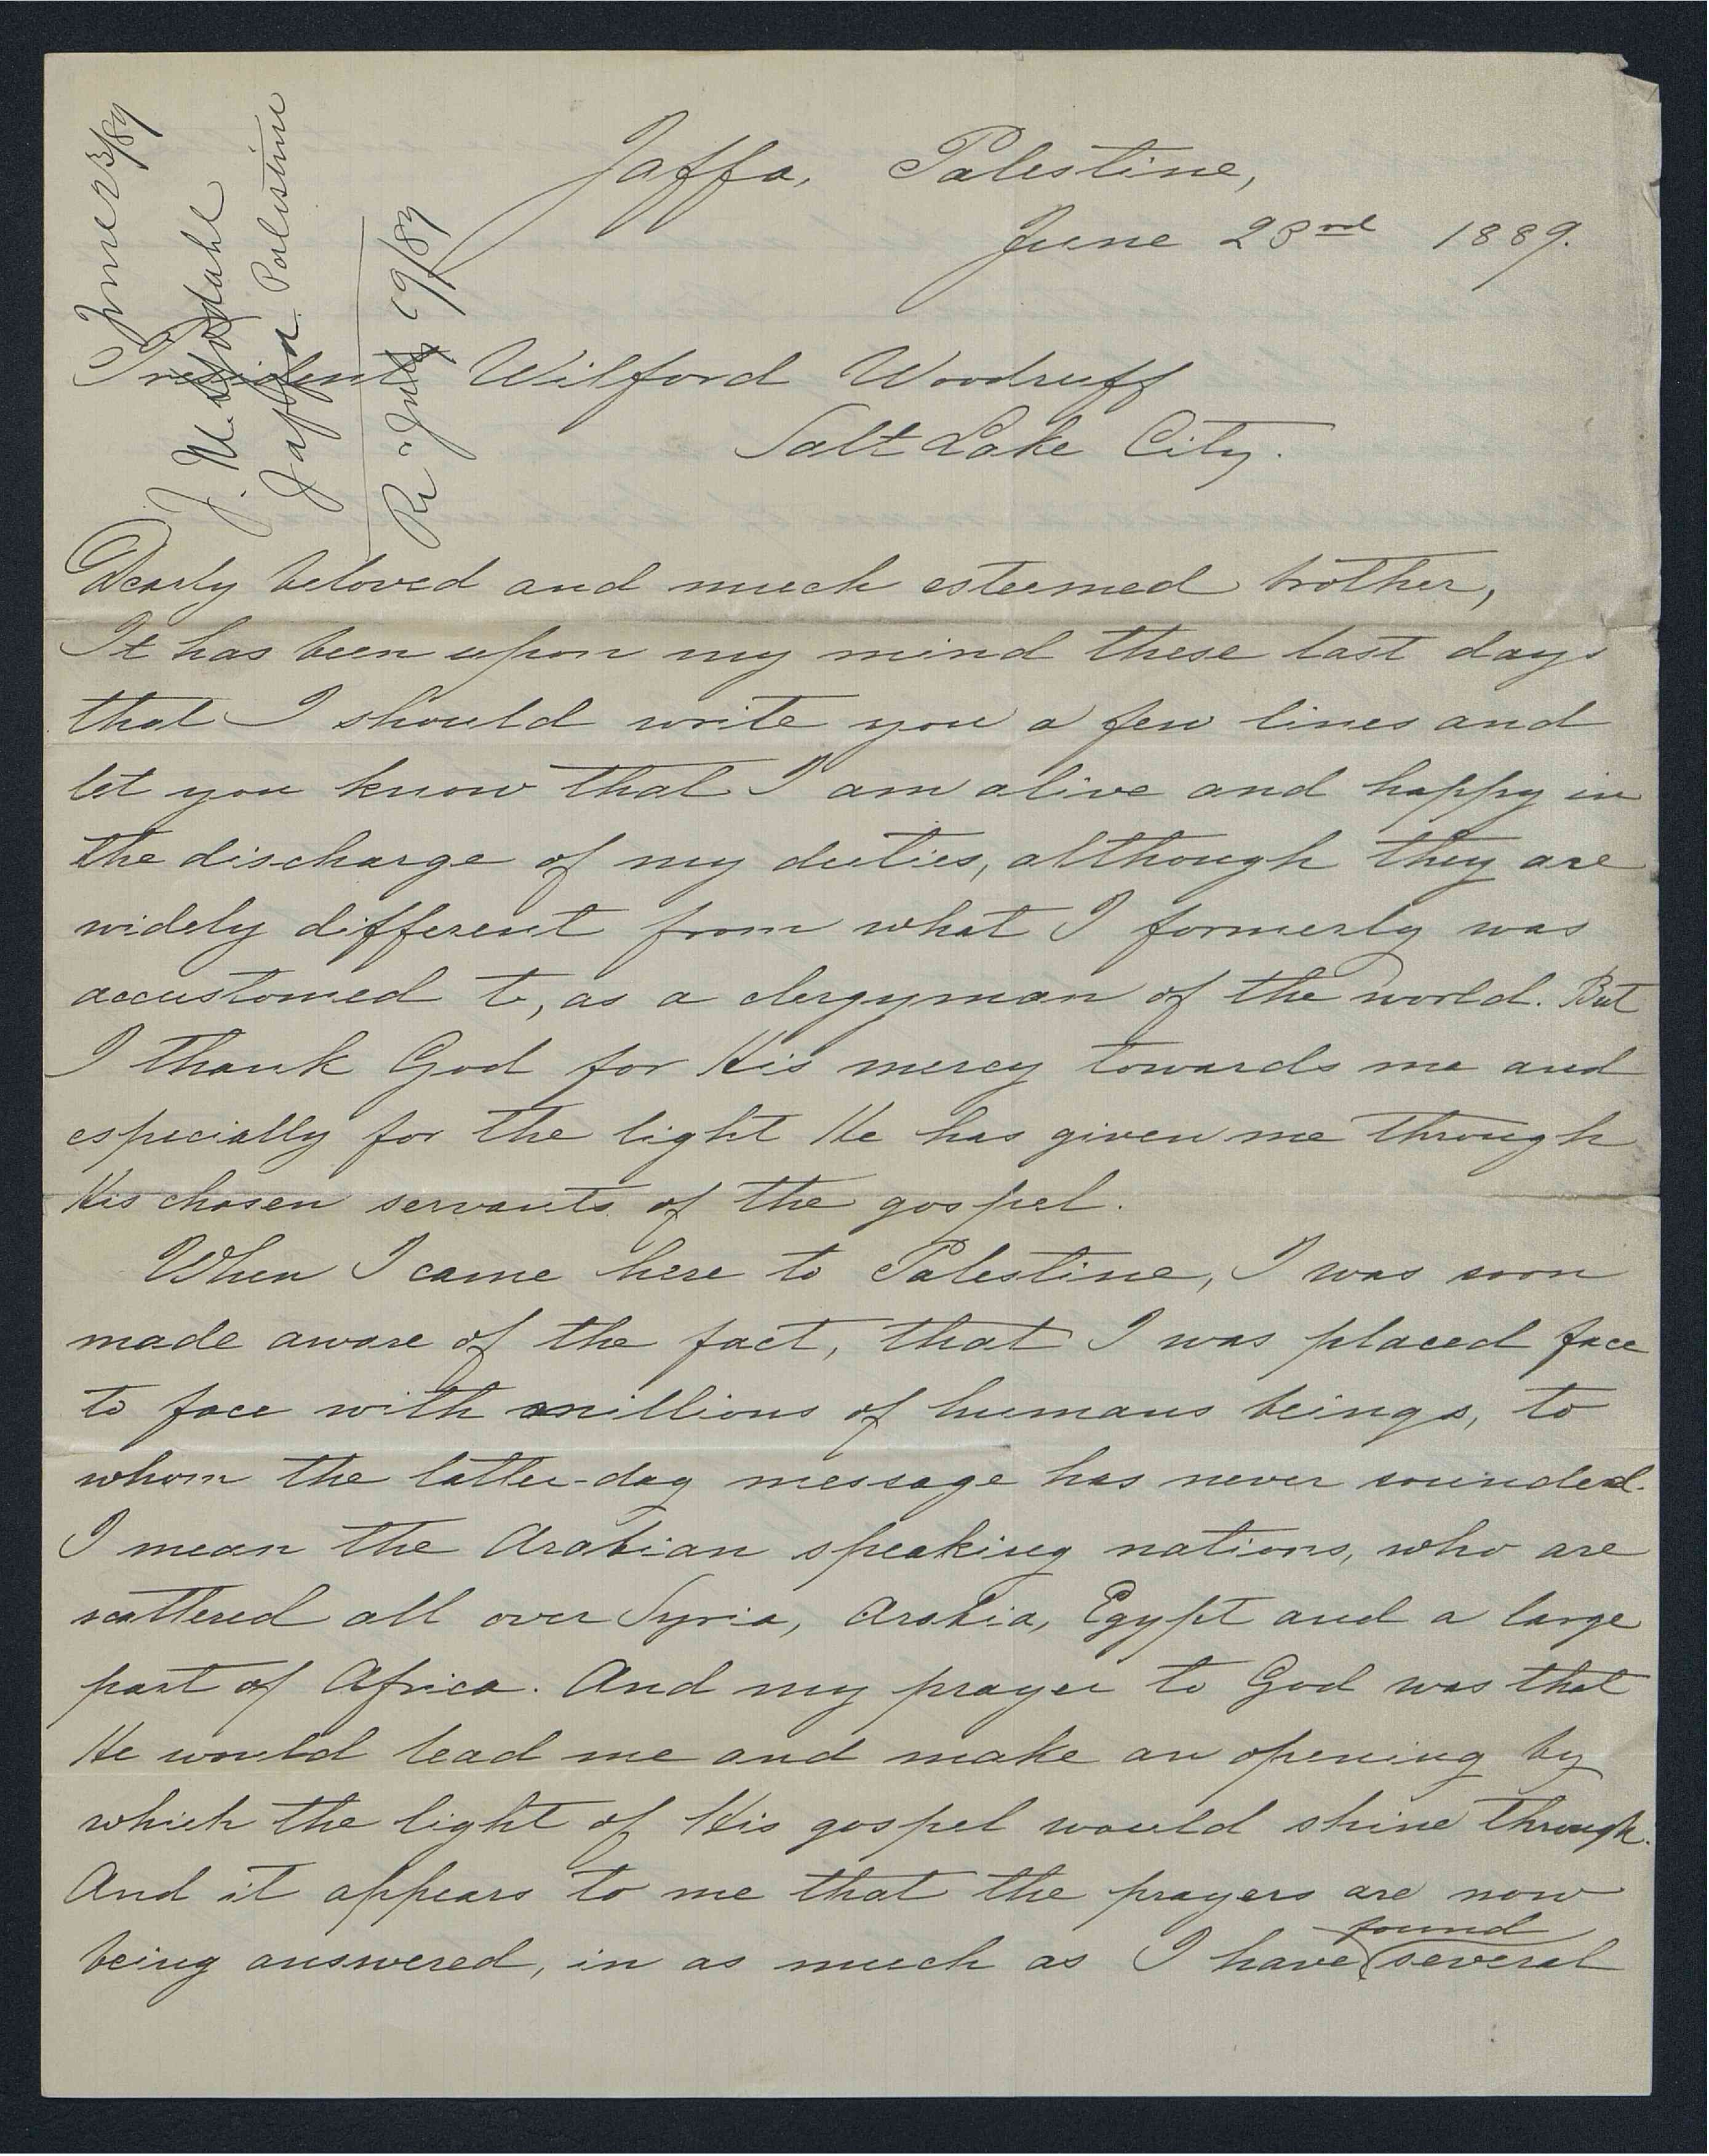 June 23/89
J. M. Sjodahl
Jaffa Palestine
Re July 19/89
Jaffa, Palestine,
June 23rd 1889.
President Wilford Woodruff
Salt Lake City.
Dearly beloved and much esteemed brother,
It has been upon my mind these last days
that I should write you a few lines and
let you know that I am alive and happy in
the discharge of my duties, although they are
widely different from what I formerly was
accustomed to, as a clergyman of the world. But
I thank God for His mercy towards me and
especially for the light He has given me through
His chosen servants of the gospel.
When I came here to Palestine, I was soon
made aware of the fact, that I was placed face
to face with millions of humans beings, to
whom the latter-day message has never sounded.
I mean the Arabian speaking nations, who are
scattered all over Syria, Arabia, Egypt and a large
part of Africa. And my prayer to God was that
He would lead me and make an opening by
which the light of His gospel would shine through.
And it appears to me that the prayers are now
being answered, in as much as I have found several